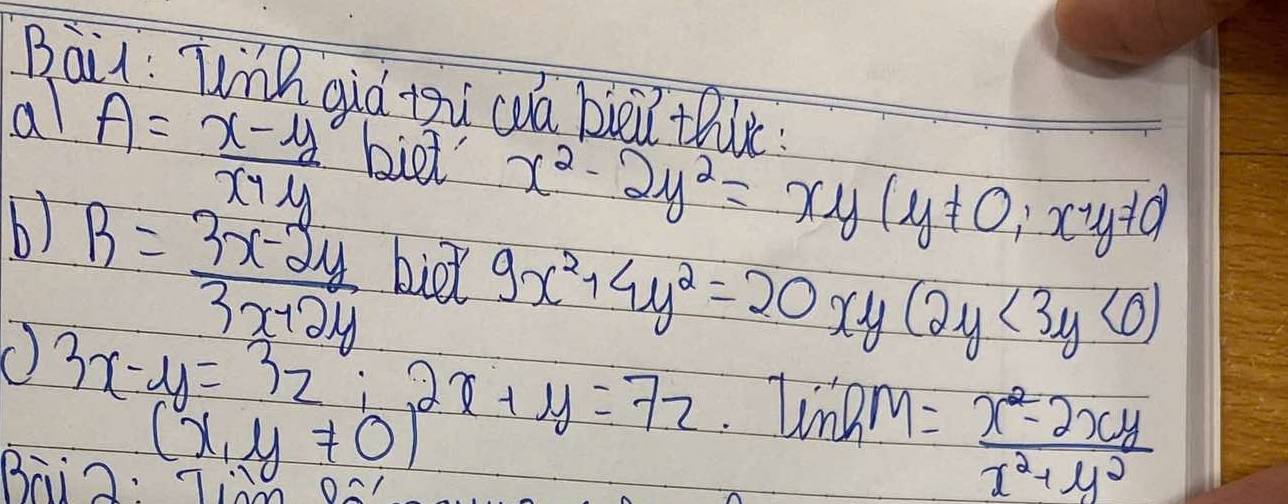 Bài 1: Tính giá trị của biểu thức:
a) A = (x-y)/(x+y) biết x² - 2y² = xy (y≠0; x+y≠0)
b) B = (3x-2y)/(3x+2y) biết 9x²+4y² = 20xy (2y<3y<0)
c) 3x-y = 3z ; 2x+y = 7z. Tính M = (x²-2xy)/(x²+y²)
(x,y ≠ 0)
Bài 2: Tìm